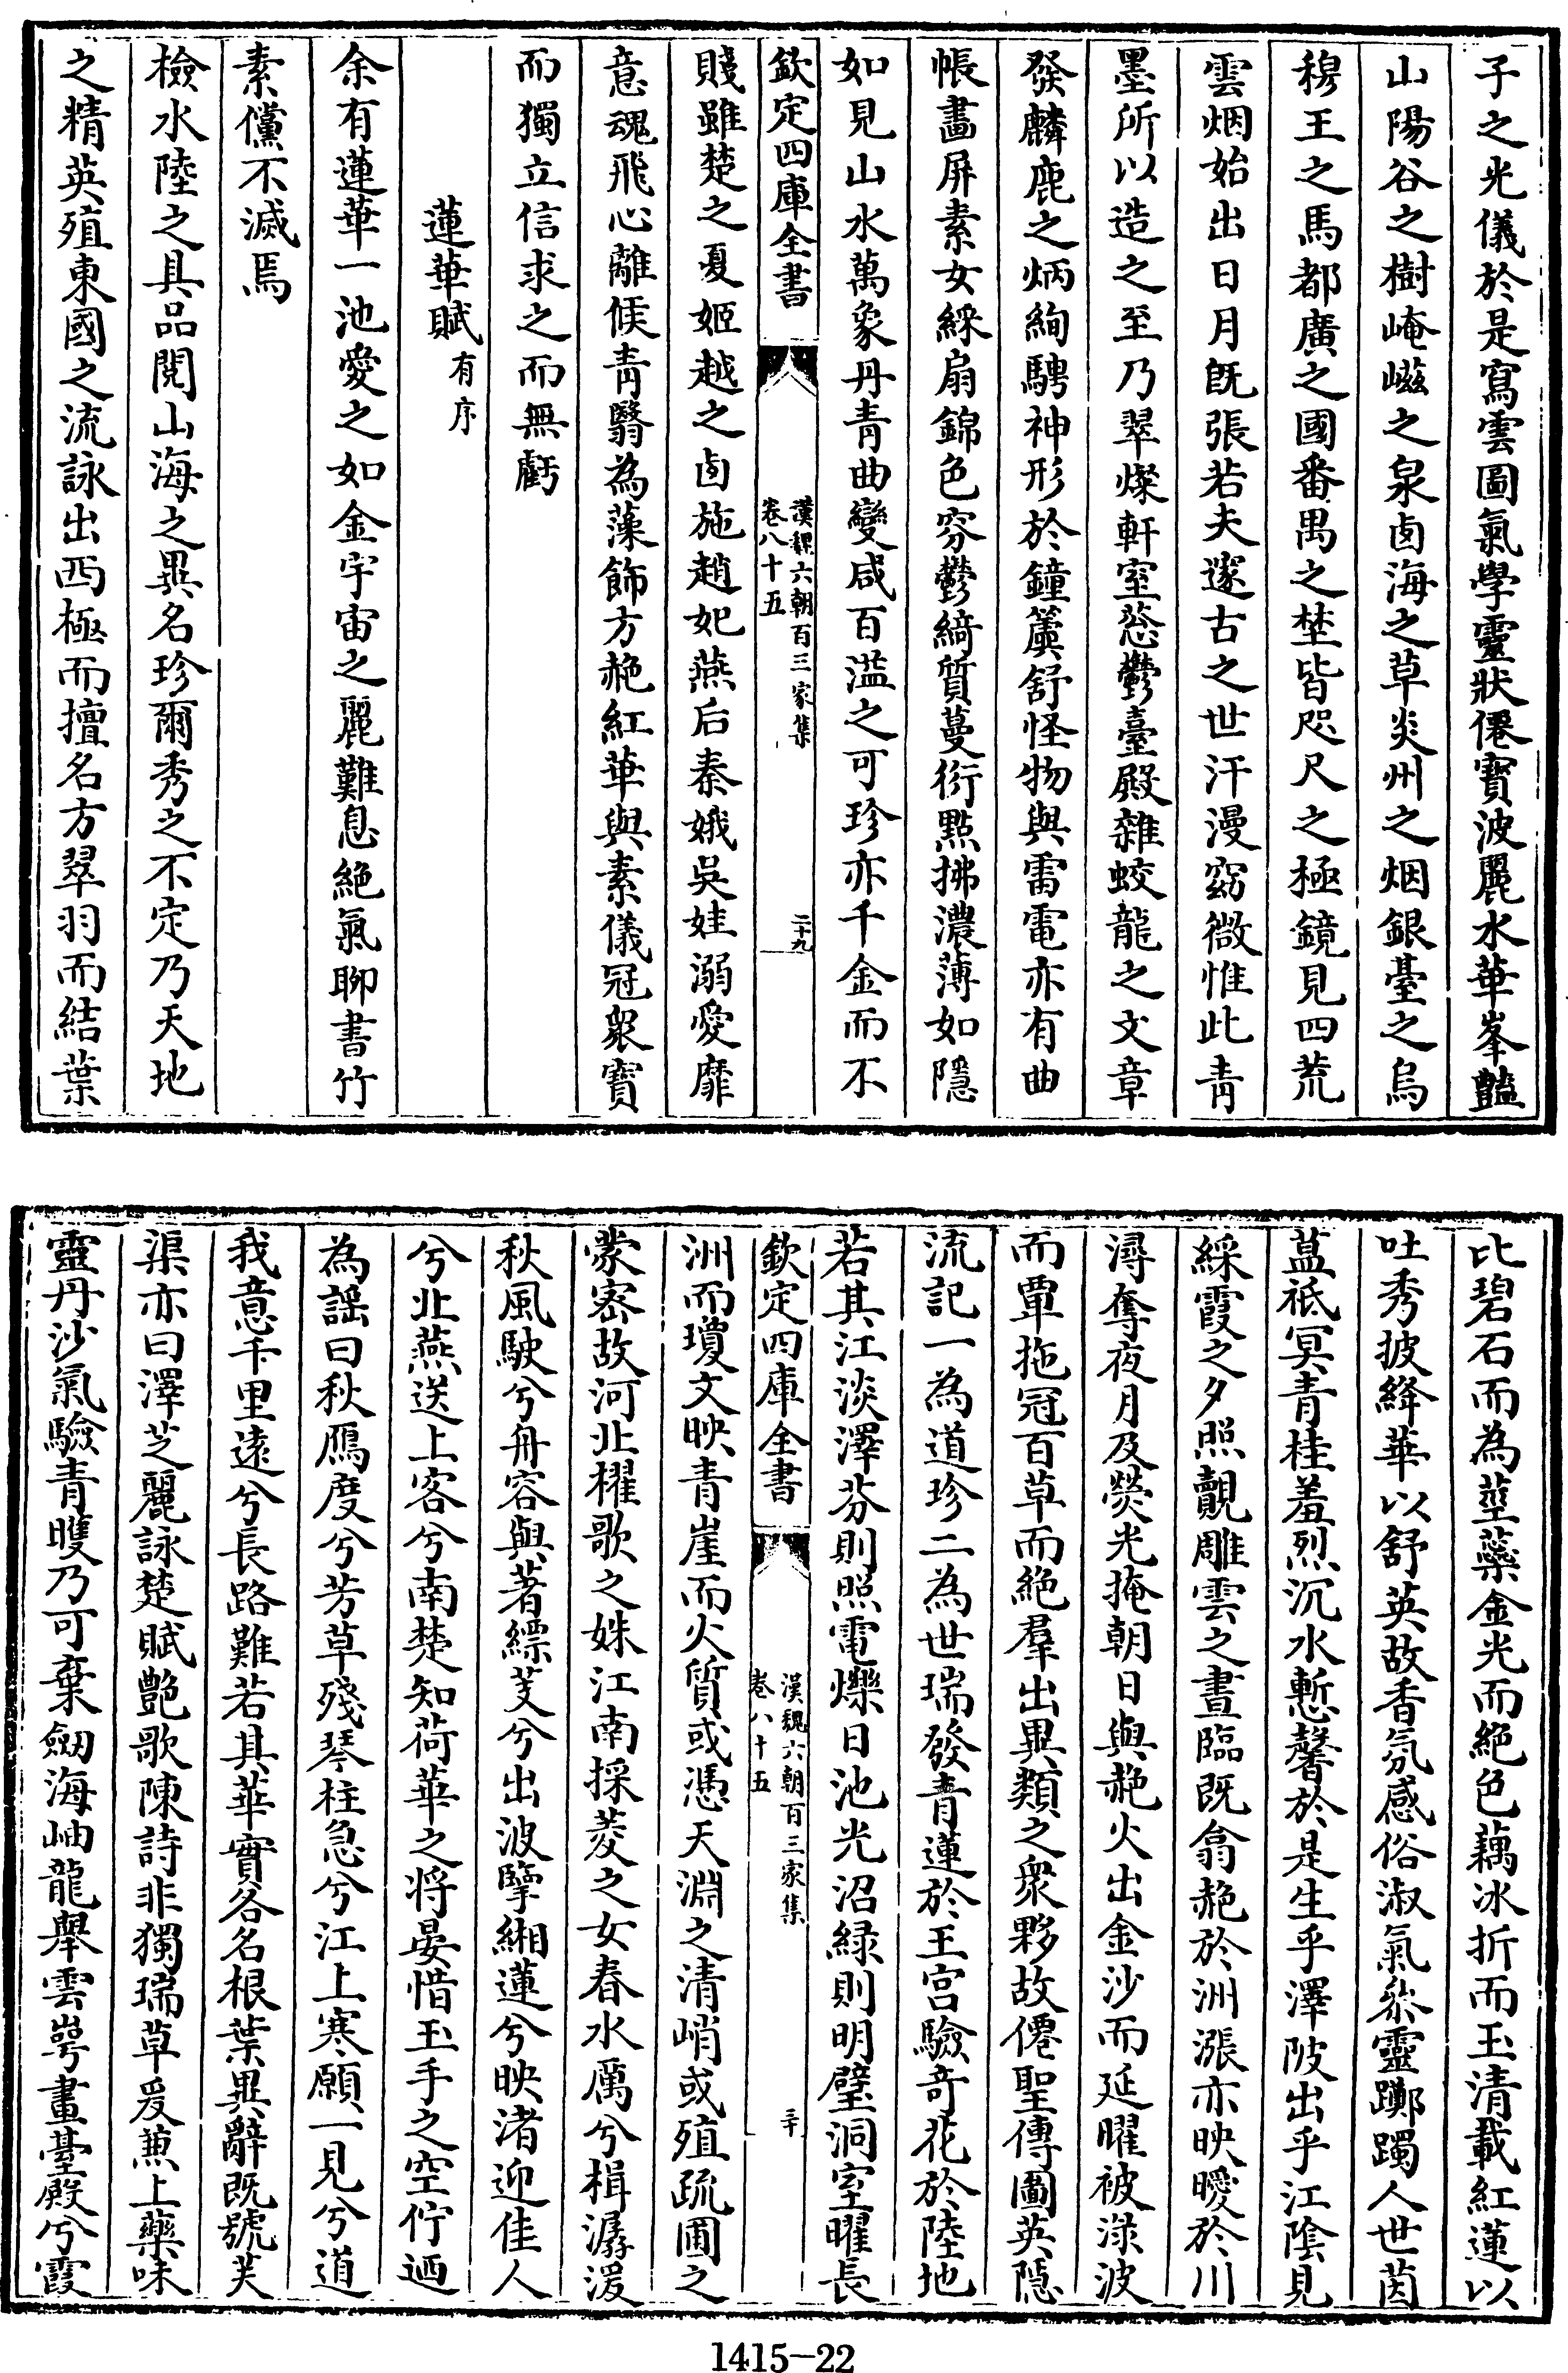 子之光儀於是寫雲圖氣學靈狀僊寳波麗水華峯豔
山陽谷之樹崦嵫之泉鹵海之草炎州之烟銀臺之烏
穆王之馬都廣之國番禺之埜皆咫尺之極鏡見四荒
雲烟始出日月旣張若夫邃古之世汗漫窈微惟此青
墨所以造之至乃翠燦軒室蓊鬱臺殿雜蛟龍之文章
發麟鹿之炳絢騁神形於鐘簴舒怪物與雷電亦有曲
帳畫屏素女綵扇錦色窈鬱綺質蔓衍點拂濃薄如隱
如見山水萬象丹青曲變咸百溢之可珍亦千金而不
欽定四庫全書
漢魏六朝百三家集
卷八十五
二十九
賤雖楚之夏姬越之鹵施趙妃燕后秦娥吳娃溺愛靡
意魂飛心離候青翳為藻飾方赩紅華與素儀冠衆寳
而獨立信求之而無虧
蓮華賦有序
余有蓮華一池愛之如金宇宙之麗難息絶氣聊書竹
素儻不滅焉
檢水陸之具品閲山海之異名珍爾秀之不定乃天地
之精英殖東國之流詠出西極而擅名方翠羽而結葉
比碧石而為莖蘂金光而絶色藕冰折而玉清載紅蓮以
吐秀披絳華以舒英故香氛感俗淑氣叅靈躑躅人世茵
蒀祇冥青桂羞烈沉水慙馨於是生乎澤陂出乎江陰見
綵霞之夕照覿雕雲之晝臨既翕赩於洲漲亦映曖於川
潯奪夜月及熒光掩朝日與赩火出金沙而延曜被淥波
而覃拖冠百草而絶羣出異類之衆夥故僊聖傳圖英隱
流記一為道珍二為世瑞發青蓮於王宫驗竒花於陸地
若其江淡澤芬則照電爍日池光沼緑則明璧洞室曜長
欽定四庫全書
漢魏六朝百三家集
卷八十五
三十
洲而瓊文映青崖而火質或憑天淵之清峭或殖疏圃之
蒙密故河北櫂歌之姝江南採菱之女春水厲兮楫潺湲
秋風駛兮舟容與著縹芰兮出波擥緗蓮兮映渚迎佳人
兮北燕送上客兮南楚知荷華之将晏惜玉手之空佇迺
為謡曰秋鴈度兮芳草殘琴柱急兮江上寒願一見兮道
我意千里遠兮長路難若其華實各名根葉異辭既號芙
渠亦曰澤芝麗詠楚賦艷歌陳詩非獨瑞草爰蕉上藥味
靈丹沙氣驗青雘乃可棄劒海岫龍舉雲萼畫臺殿兮霞
1415-22